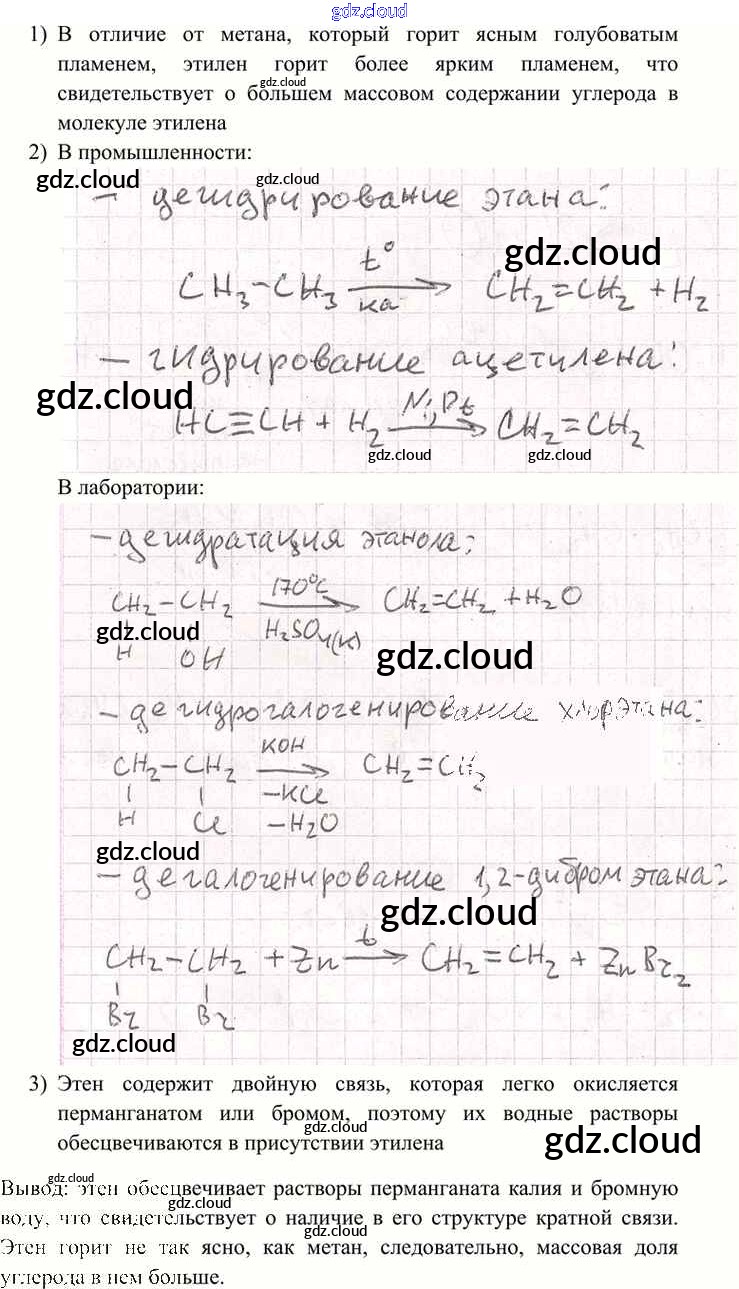 gdz.cloud
1) В отличие от метана, который горит ясным голубоватым
пламенем, этилен горит более ярким пламенем, что
gdz.cloud
свидетельствует о большем массовом содержании углерода в
молекуле этилена
2) В промышленности:
gdz.cloud gdz.cloud
– дегидрирование этана:
gdz.cloud
CH3–CH3 t° ка CH2=CH2 + H2
– гидрирование ацетилена:
gdz.cloud
HC≡CH + H2 Ni, Pt CH2=CH2
gdz.cloud gdz.cloud
В лаборатории:
– дегидратация этанола:
CH2–CH2 170°C H2SO4(к) CH2=CH2 + H2O
gdz.cloud
H OH
gdz.cloud
– дегидрогалогенирование хлорэтана:
CH2–CH2 КОН –KCl –H2O CH2=CH2
H Cl
gdz.cloud
– дегалогенирование 1,2-дибромэтана:
gdz.cloud
CH2–CH2 + Zn t CH2=CH2 + ZnBr2
Br Br
gdz.cloud
3) Этен содержит двойную связь, которая легко окисляется
перманганатом или бромом, поэтому их водные растворы
gdz.cloud
обесцвечиваются в присутствии этилена
gdz.cloud
gdz.cloud
Вывод: этен обесцвечивает растворы перманганата калия и бромную
gdz.cloud
воду, что свидетельствует о наличие в его структуре кратной связи.
gdz.cloud
Этен горит не так ясно, как метан, следовательно, массовая доля
углерода в нем больше.